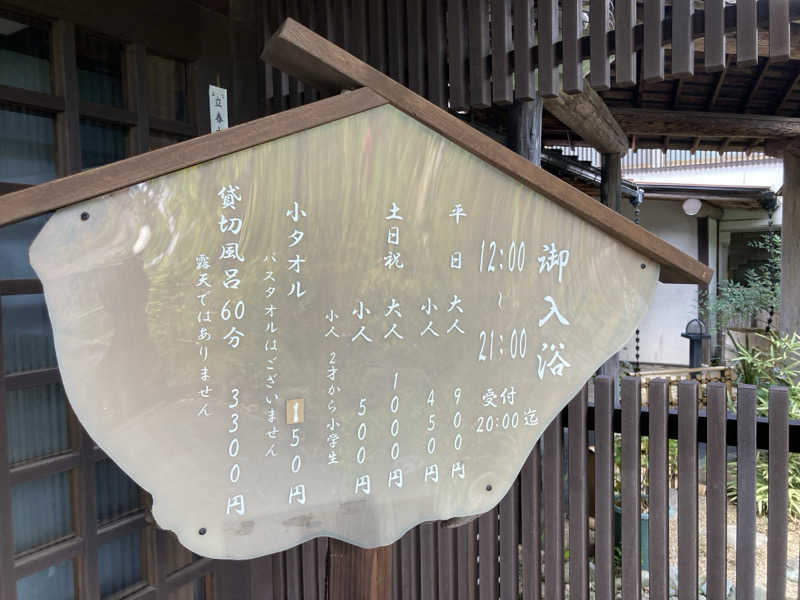 御入浴
12:00
〜
21:00
受付
20:00迄
平日 大人 900円
小人 450円
土日祝 大人 1000円
小人 500円
小人 2才から小学生
小タオル 150円
バスタオルはございません
貸切風呂 60分 3300円
露天ではありません
立春